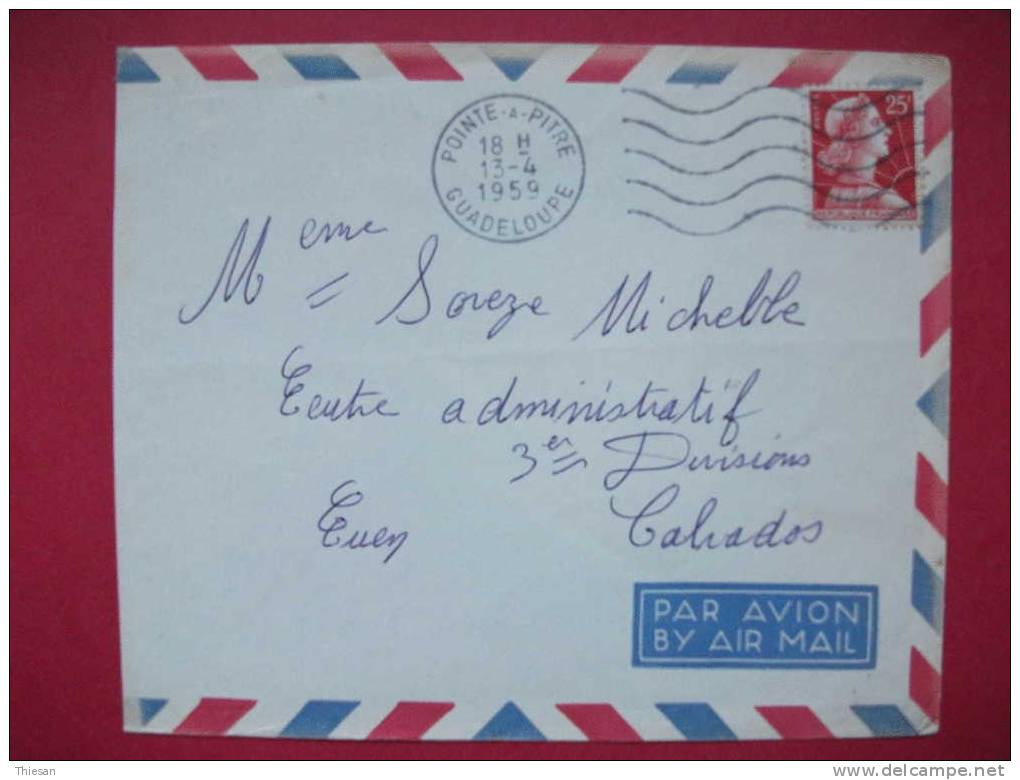 POINTE-A-PITRE
18 H
13-4
1959
GUADELOUPE
25F
REPUBLIQUE FRANÇAISE
Meme Soreze Michelle
Centre administratif
3er Divisions
Caen Calvados
PAR AVION
BY AIR MAIL
Thiesan
www.delcampe.net